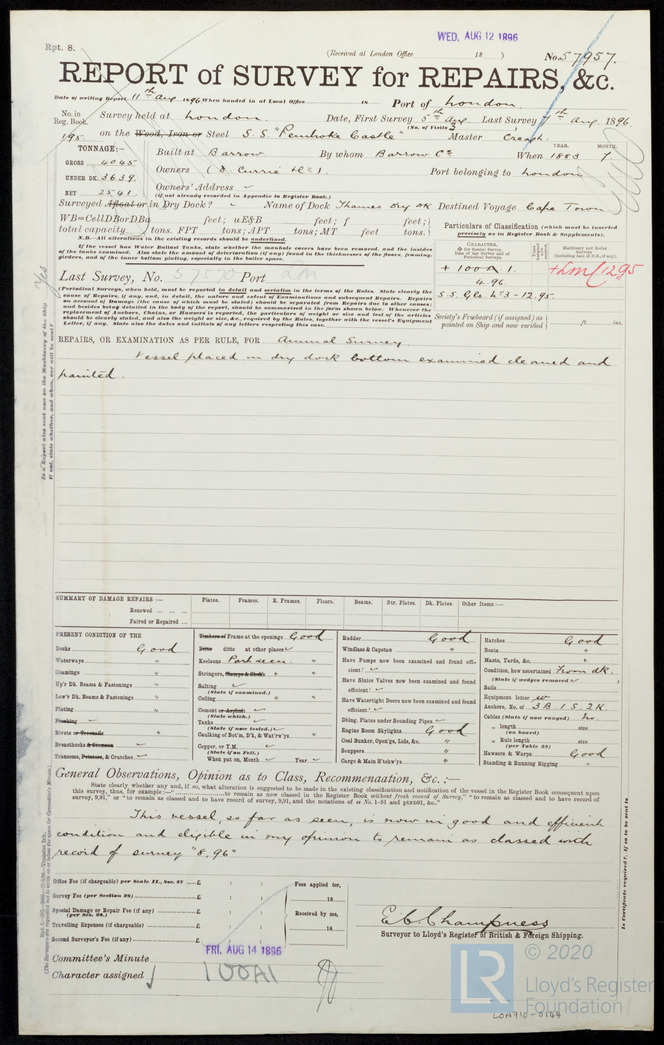 WED. AUG 12 1896
Rpt. 8.
(Received at London Office 18 )
No. 57957.
REPORT of SURVEY for REPAIRS, &c.
Date of writing Report 11th Aug. 1896 When handed in at Local Office 18 Port of London.
No. in Reg. Book. Survey held at London. Date, First Survey 5th Aug. Last Survey Aug. 1896
(No. of Visits 3
195 on the Wood, Iron or Steel S.S "Pembroke Castle" Master Creagh.
TONNAGE:—
GROSS 4045
UNDER DK. 3639.
NET 2541.
Built at Barrow. By whom Barrow Co When 1883 7
YEAR. MONTH.
Owners (D. Currie & Co). Port belonging to London
Owners' Address
(if not already recorded in Appendix to Register Book.)
Surveyed Afloat or in Dry Dock? Name of Dock Thames Dry Dk Destined Voyage Cape Town
WB=CellDBorDBa feet; uE&B feet; f feet;
total capacity tons. FPT tons; APT tons; MT feet tons.
N.B.—All alterations in the existing records should be underlined.
If the vessel has Water Ballast Tanks, state whether the manhole covers have been removed, and the insides
of the tanks examined. Also state the amount of deterioration (if any) found in the thicknesses of the floors, framing,
girders, and of the inner bottom plating, especially in the boiler space.
Particulars of Classification (which must be inserted
precisely as in Register Book & Supplements).
CHARACTER.
+ 100A 1.
4.96.
S.S. Gls. No3 - 12.95.
+LMC 12.95
Last Survey, No. Port
(Periodical Surveys, when held, must be reported in detail and seriatim in the terms of the Rules. State clearly the
cause of Repairs, if any, and, in detail, the nature and extent of Examinations and subsequent Repairs. Repairs
on account of Damage (the cause of which must be stated) should be separated from Repairs due to other causes;
and besides being detailed in the body of the report, should be summarised in the form shown below. Whenever the
replacement of Anchors, Chains, or Hawsers is reported, the particulars of weight or size and test of the articles
should be clearly stated, and also the weight or size, &c., required by the Rules, together with the vessel's Equipment
Letter, if any. State also the dates and initials of any letters respecting this case.
Society's Freeboard (if assigned) as
painted on Ship and now verified ft. ins.
REPAIRS, OR EXAMINATION AS PER RULE, FOR Annual Survey.
Vessel placed in dry dock bottom examined cleaned and
painted.
SUMMARY OF DAMAGE REPAIRS:— Plates. Frames. R. Frames. Floors. Beams. Str. Plates. Dk. Plates. Other Items:—
Renewed ... ... ...
Faired or Repaired ...
PRESENT CONDITION OF THE
Decks Good
Waterways "
Coamings "
Up'r Dk. Beams & Fastenings "
Low'r Dk. Beams & Fastenings "
Plating "
Planking
Rivets or Treenails "
Breasthooks & Sternson
Transoms, Pointers, & Crutches
Timbers or Frame at the openings Good
Ditto ditto at other places
Keelsons Part seen.
Stringers, Clamps & Shelfs "
Salting
(State if examined.)
Ceiling "
Cement or Asphalt
(State which.)
Tanks
(State if now tested.)
Caulking of Bot'm, D'k, & Wat'rw'ys "
Copper, or Y.M.
(State if on Felt.)
When put on, Month Year
Rudder Good
Windlass & Capstan "
Have Pumps now been examined and found efficient?
Have Sluice Valves now been examined and found efficient?
Have Watertight Doors now been examined and found efficient?
Dblng. Plates under Sounding Pipes
Engine Room Skylights Good
Coal Bunker, Open'gs, Lids, &c. "
Scuppers "
Cargo & Main H'tchw'ys "
Hatches Good
Boats "
Masts, Yards, &c. "
Condition, how ascertained From dk.
(State if wedges removed)
Sails
Equipment letter w
Anchors, No. of 3B. 1S. 2K.
Cables (State if now ranged) No.
" length (on board)
" Rule length
(per Table 22)
" size
Hawsers & Warps Good
Standing & Running Rigging "
General Observations, Opinion as to Class, Recommendation, &c.:—
State clearly whether any, and if so, what alteration is suggested to be made in the existing classification and notification of the vessel in the Register Book consequent upon
this survey, thus, for example:— "to remain as now classed in the Register Book without fresh record of Survey," "to remain as classed and to have record of
survey, 9,91," or "to remain as classed and to have record of survey, 9,91, and the notations of ss No. 1-91 and ptND91, &c."
This vessel, so far as seen, is now in good and efficient
condition and eligible in my opinion to remain as classed with
record of survey "8,96"
Office Fee (if chargeable) per Scale II., Sec. 27 £
Survey Fee (per Section 28) £
Special Damage or Repair Fee (if any)
(per Sec. 28.) £
Travelling Expenses (if chargeable) £
Second Surveyor's Fee (if any) £
Fees applied for, 18
Received by me, 18
E.C. Champness
Surveyor to Lloyd's Register of British & Foreign Shipping.
FRI. AUG 14 1896
Committee's Minute
Character assigned 100A1
LR © 2020
Lloyd's Register
Foundation
LON710-0144